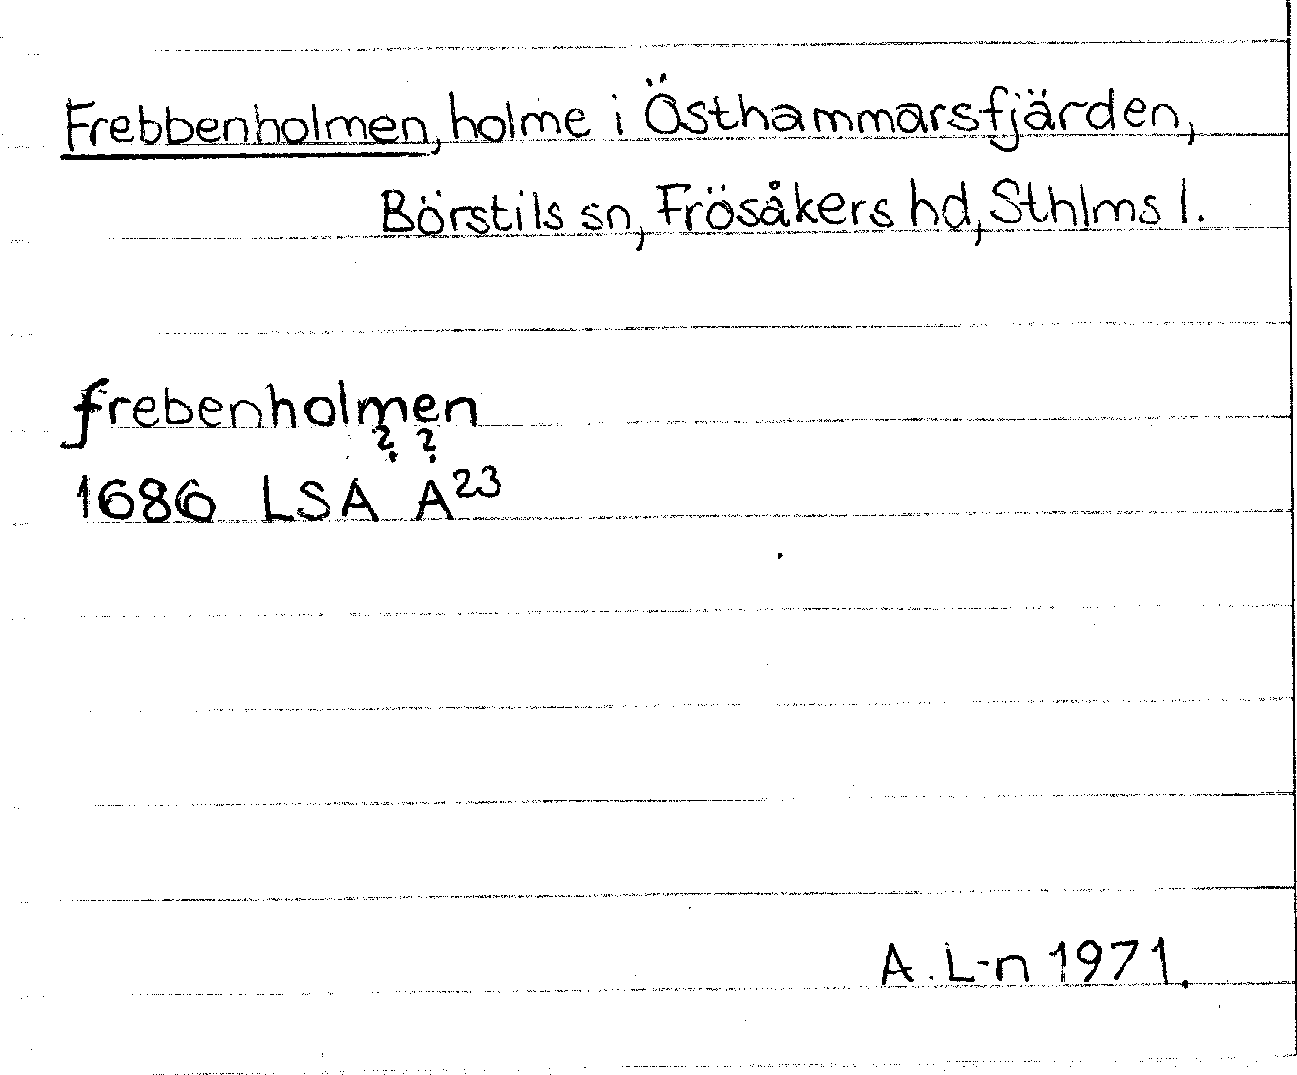 Frebbenholmen, holme i Östhammarsfjärden,
Börstils sn, Frösåkers hd, Sthlms l.
frebenholmen
? ?
1686 LSA A23
A. L-n 1971.